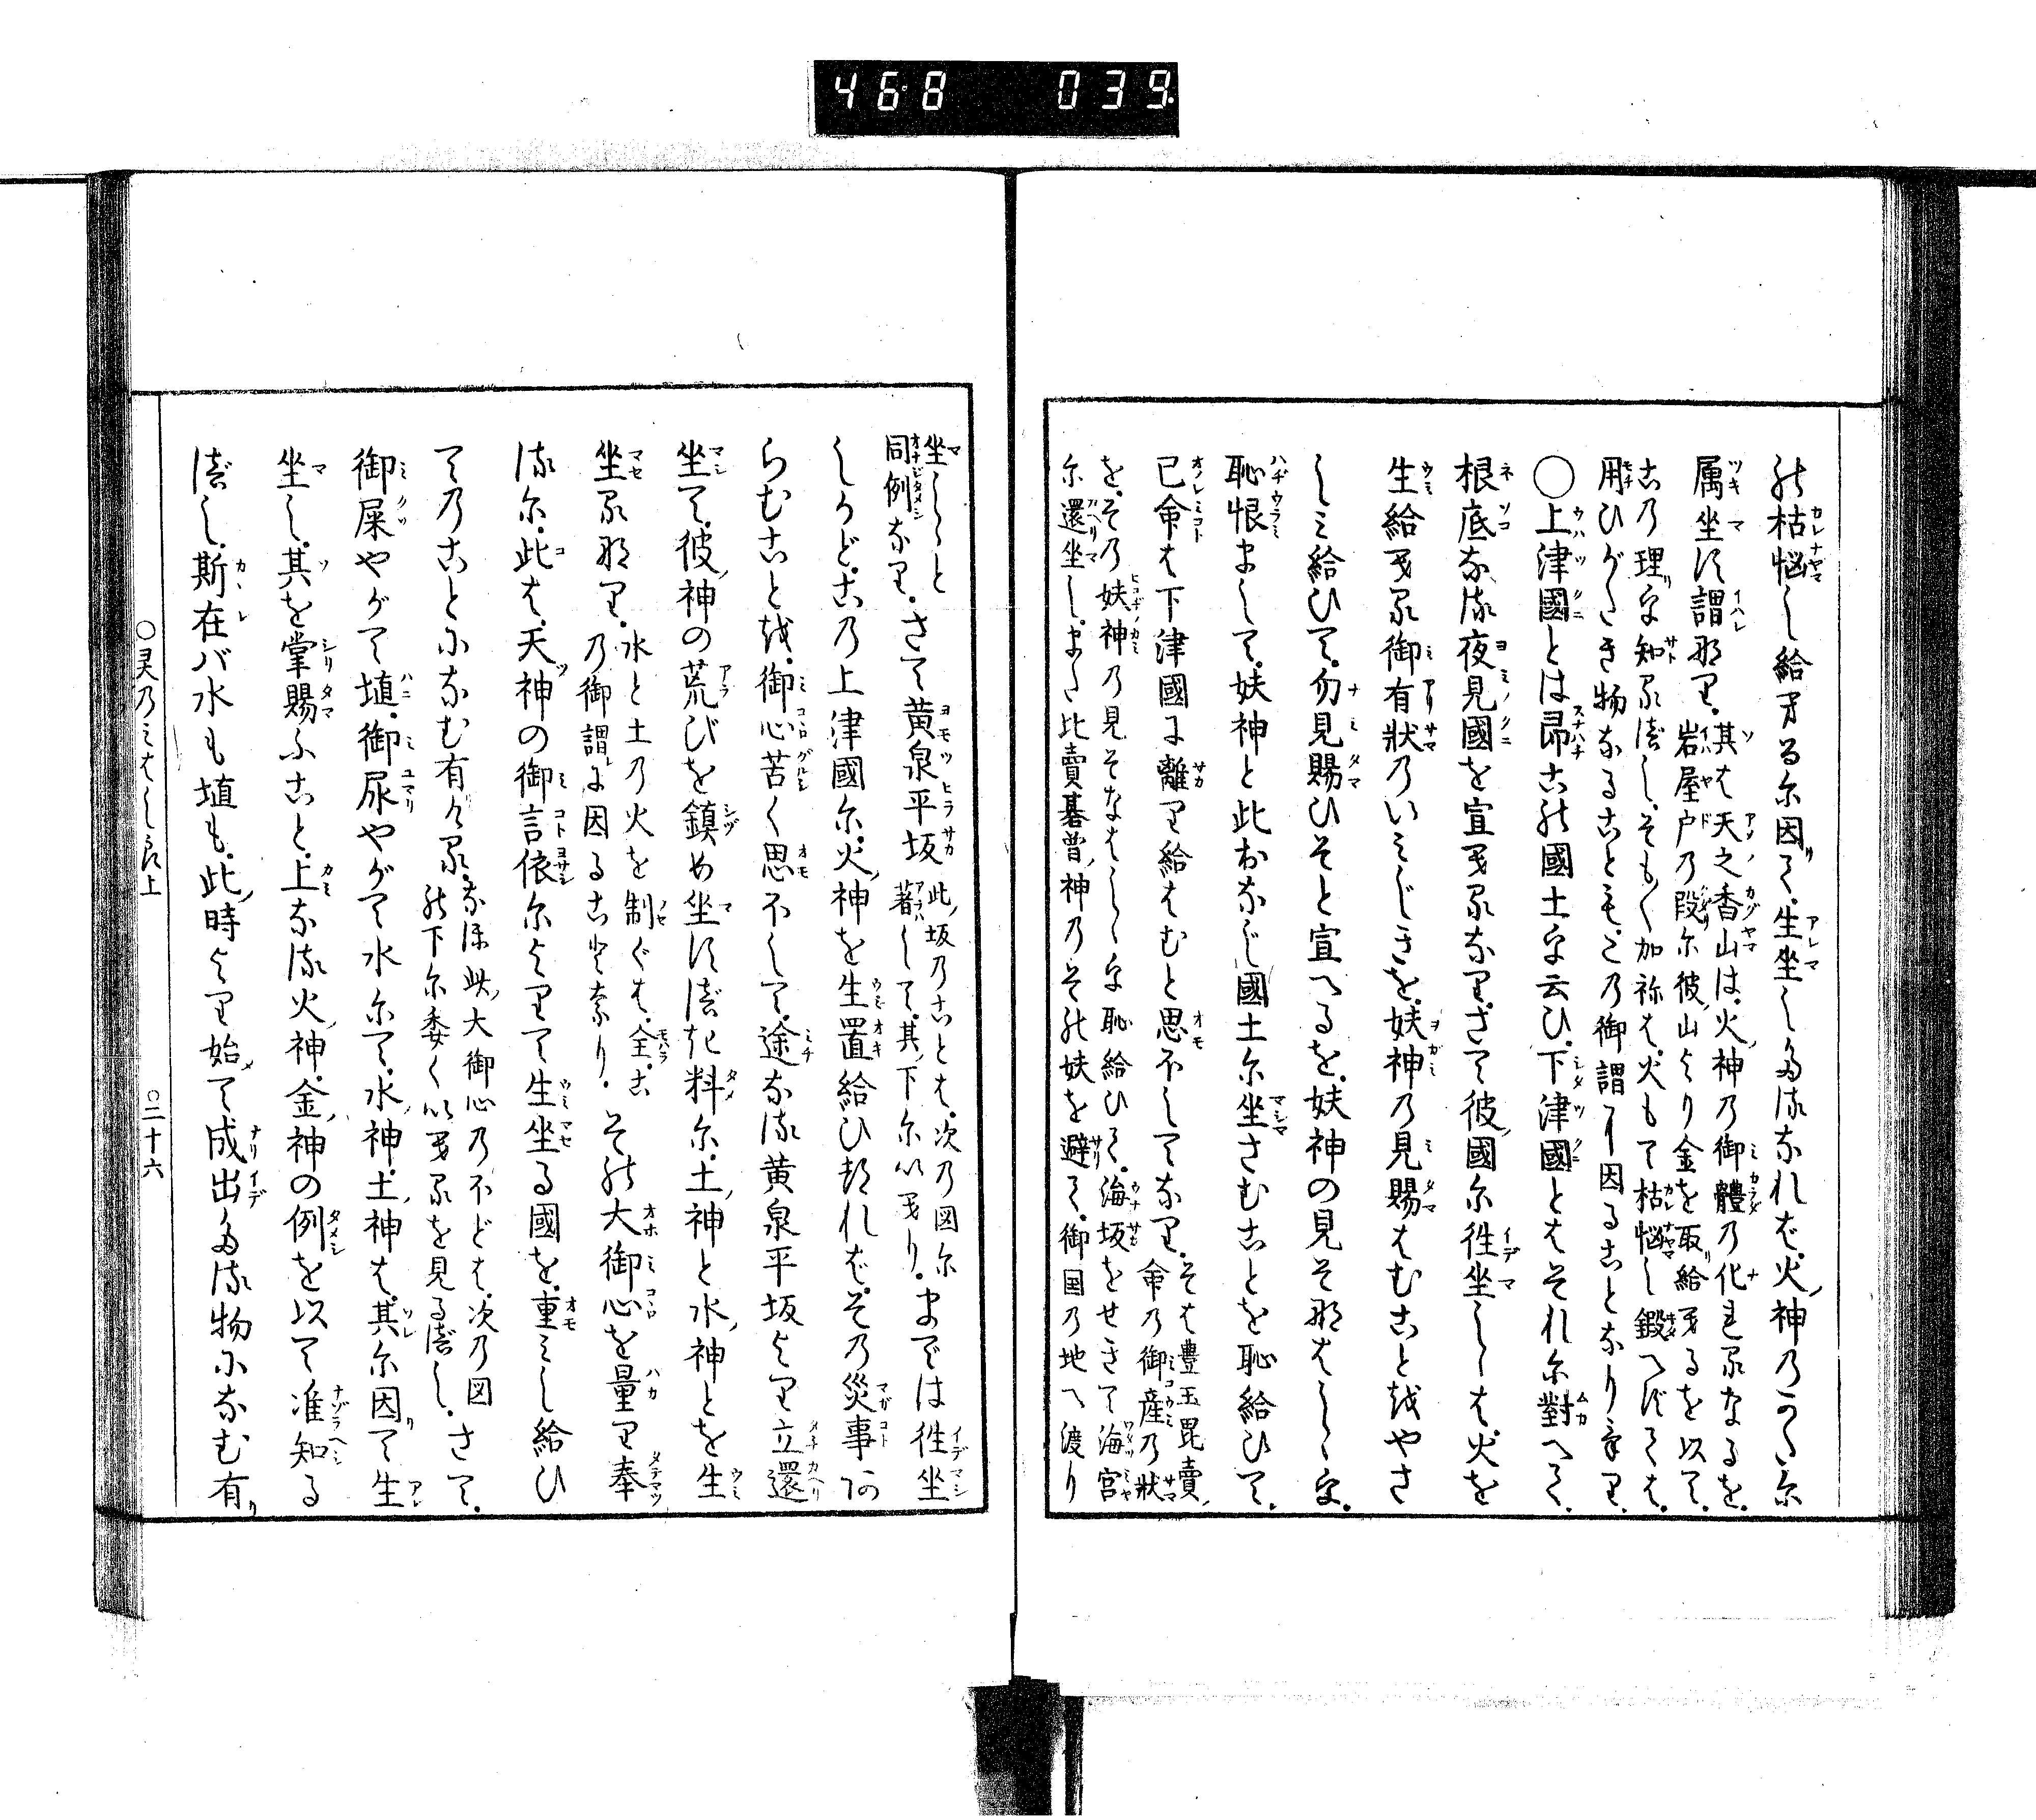 468 039
能枯悩し給するに因て、生坐しゝなれば、火神の
属坐す謂なり。其は天之香山は、火神の御體の化れるなるを、
岩屋戸の段に彼山より金を取給するを以て、
この理を知るべし。そもそも加祢は、火もて枯悩し鍛へずては、
用ひがたき物なることも、この御謂に因ることなりけり。
○上津國とは即この國土を云ひ、下津國とはそれに對へて、
根底なる夜見國を宣するなり。さて彼國に往坐しゝは、火を
生給する御有狀のいみじきを、妋神の見賜はむことをやさ
しみ給ひて、勿見賜ひそと宣へるを、妋神の見そなはしゝを、
恥恨まして、妋神と此おなじ國土に坐さむことを恥給ひて、
己命は下津國に離り給はむと思ほしてなり。そは豊玉毘賣
命の御産の狀
を、その妋神の見そなはしゝを恥給ひて、海坂をせきて海宮
に還坐し、また比賣碁曽神のその妋を避て、御国の地へ渡り
坐しゝと
同例なり。さて黄泉平坂此坂のことは、次の図に
著して、其下に以へり。までは往坐
しかど、この上津國に、火神を生置給ひたれば、その災事あ
らむことを、御心苦く思ほして、途なる黄泉平坂より立還
坐て、彼神の荒びを鎮め坐すべき料に、土神と水神とを生
坐るなり。水と土の火を制ぐは、全こ
の御謂に因ることなり。その大御心を量り奉
るに、此は、天神の御言依によりて生坐る國を、重みし給ひ
てのことになむ有ける。なほ此大御心のほどは、次の図
の下に委く以へるを見るべし。さて、
御屎やがて埴、御尿やがて水にて、水神土神は、其に因て生
坐し、其を掌賜ふこと、上なる火神金神の例を以て准知る
べし。斯在バ水も埴も、此時より始て成出たる物になむ有
○灵乃みはしら上
○二十六